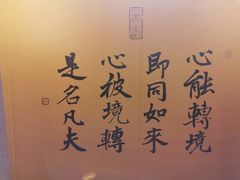 心能轉境
即同如來
心被境轉
是名凡夫